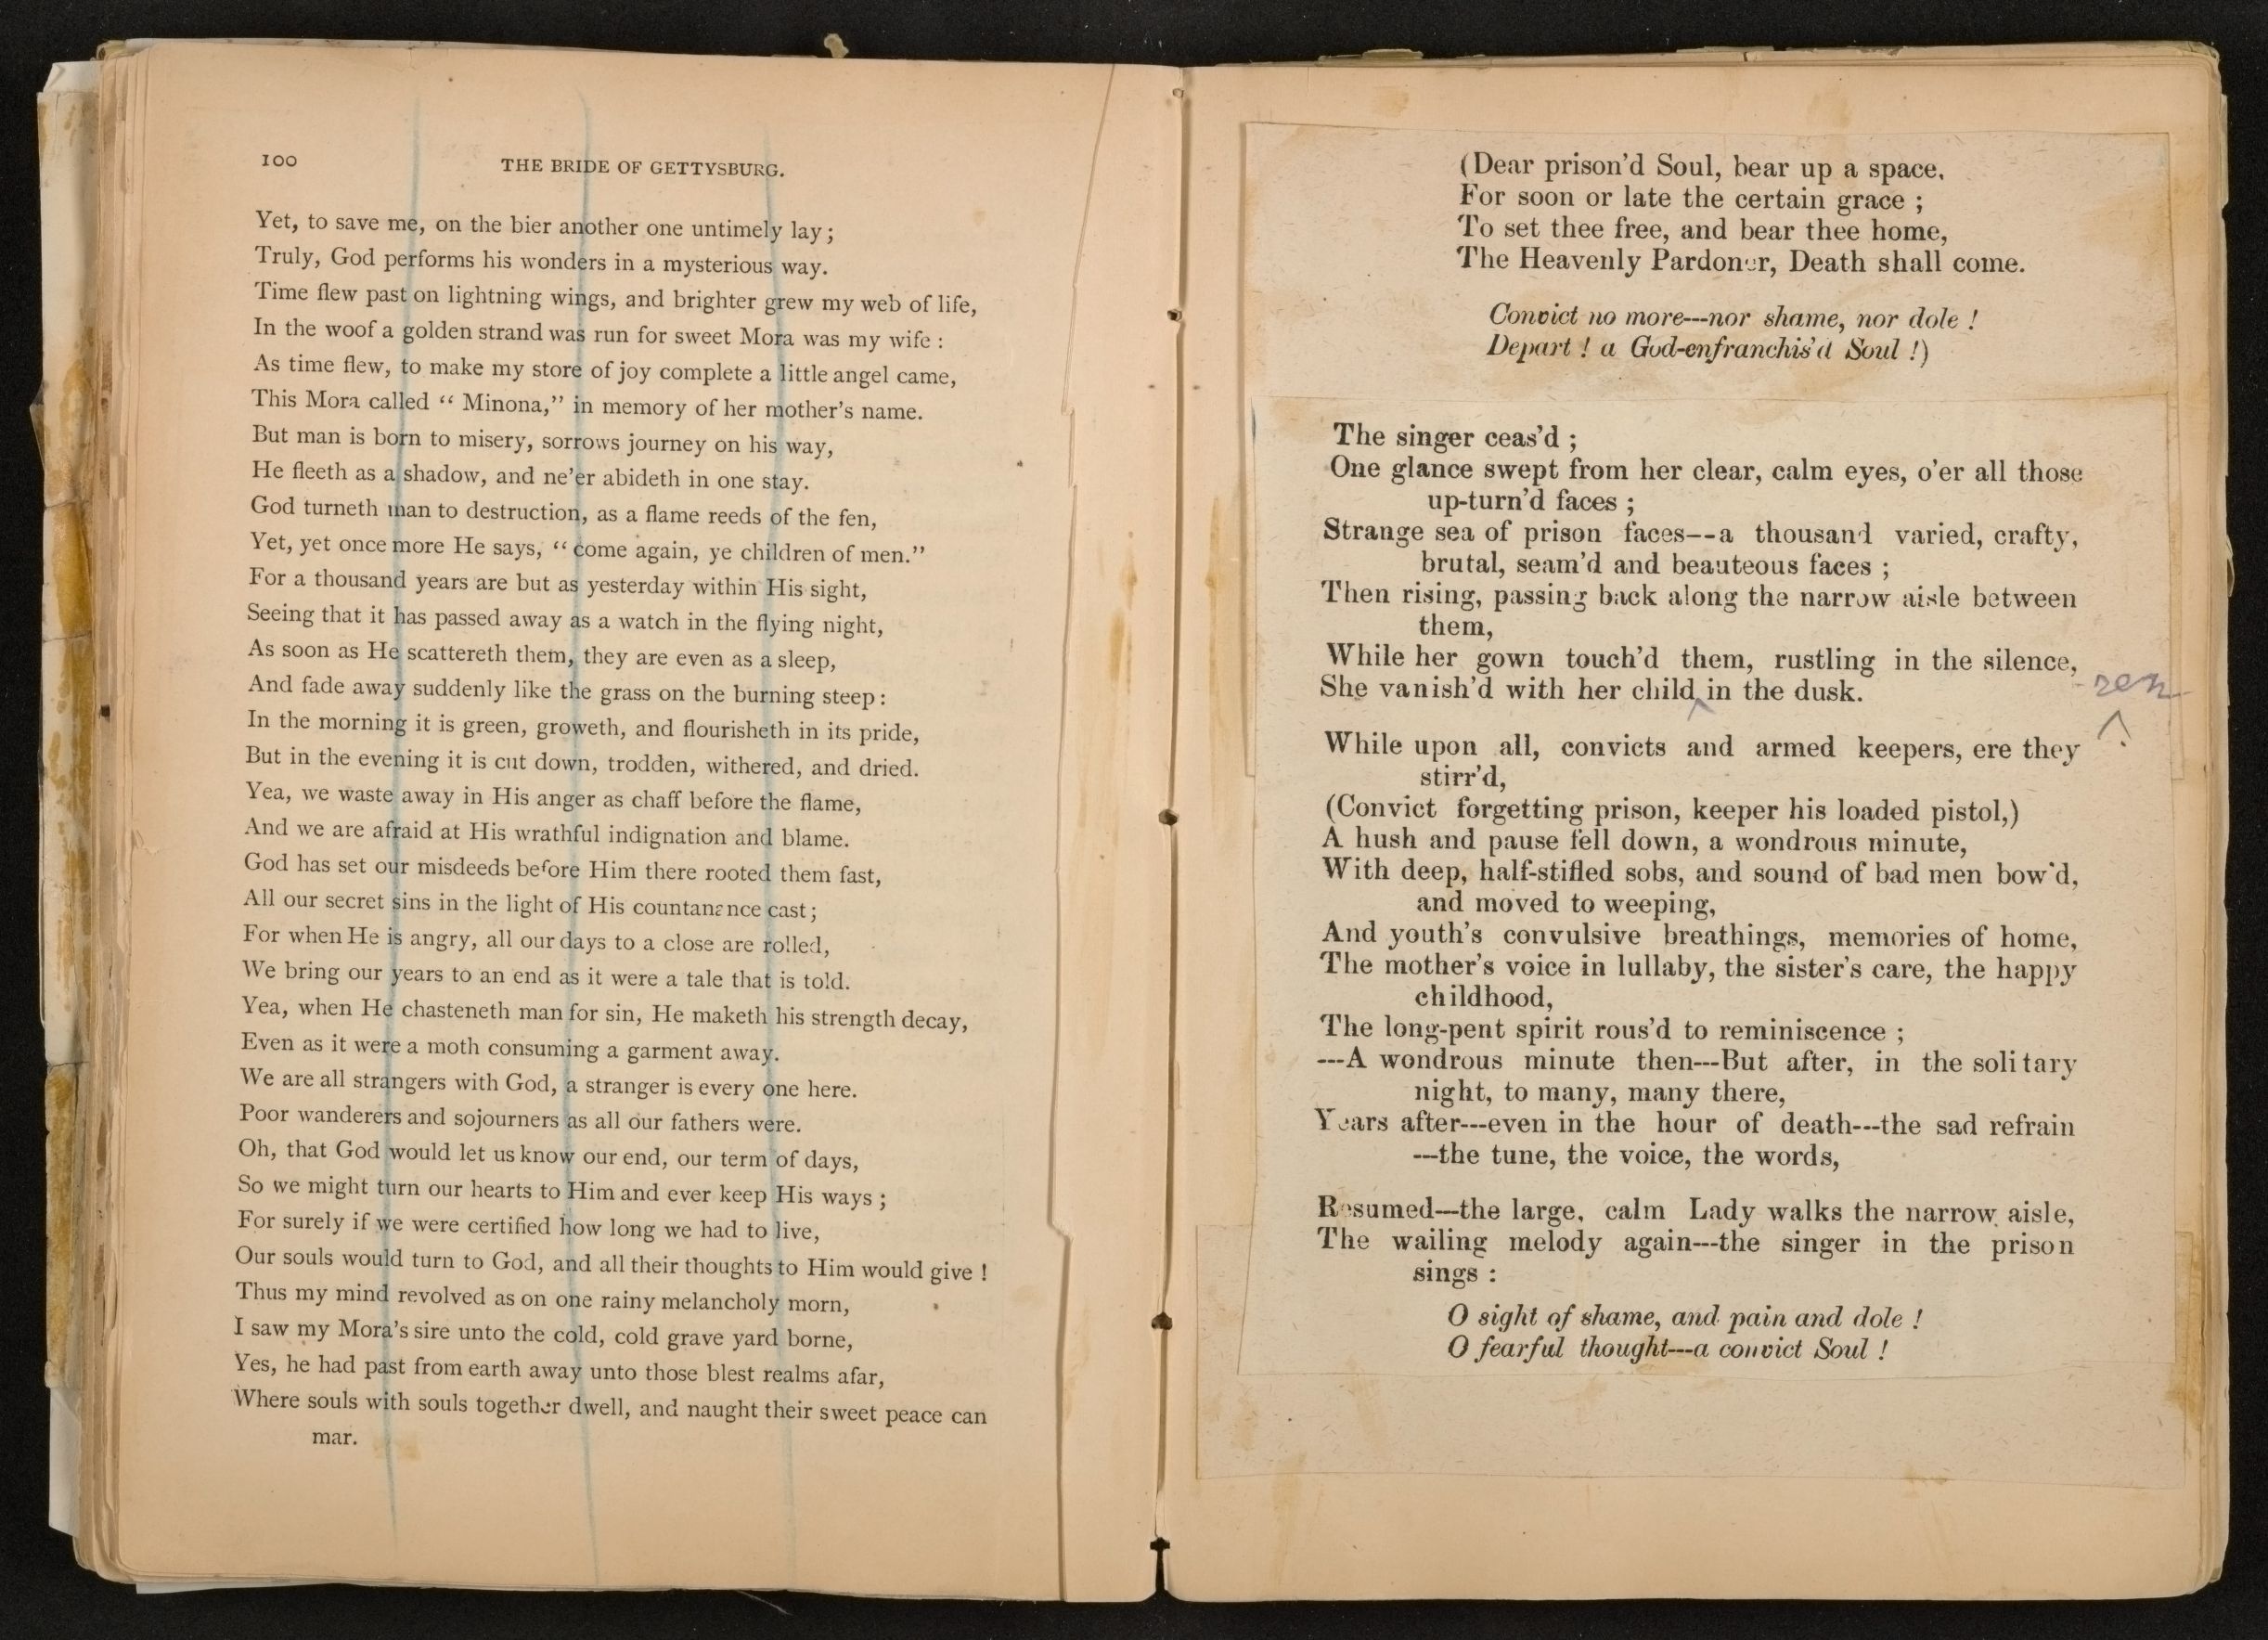 100
THE BRIDE OF GETTYSBURG.
Yet, to save me, on the bier another one untimely lay;
Truly, God performs his wonders in a mysterious way.
Time flew past on lightning wings, and brighter grew my web of life,
In the woof a golden strand was run for sweet Mora was my wife :
As time flew, to make my store of joy complete a little angel came,
This Mora called “ Minona,” in memory of her mother's name.
But man is born to misery, sorrows journey on his way,
He fleeth as a shadow, and ne'er abideth in one stay.
God turneth man to destruction, as a flame reeds of the fen,
Yet, yet once more He says, “ come again, ye children of men.”
For a thousand years are but as yesterday within His sight,
Seeing that it has passed away as a watch in the flying night,
As soon as He scattereth them, they are even as a sleep,
And fade away suddenly like the grass on the burning steep :
In the morning it is green, groweth, and flourisheth in its pride,
But in the evening it is cut down, trodden, withered, and dried.
Yea, we waste away in His anger as chaff before the flame,
And we are afraid at His wrathful indignation and blame.
God has set our misdeeds before Him there rooted them fast,
All our secret sins in the light of His countanance cast;
For when He is angry, all our days to a close are rolled,
We bring our years to an end as it were a tale that is told.
Yea, when He chasteneth man for sin, He maketh his strength decay,
Even as it were a moth consuming a garment away.
We are all strangers with God, a stranger is every one here.
Poor wanderers and sojourners as all our fathers were.
Oh, that God would let us know our end, our term of days,
So we might turn our hearts to Him and ever keep His ways ;
For surely if we were certified how long we had to live,
Our souls would turn to God, and all their thoughts to Him would give !
Thus my mind revolved as on one rainy melancholy morn,
I saw my Mora's sire unto the cold, cold grave yard borne,
Yes, he had past from earth away unto those blest realms afar,
Where souls with souls together dwell, and naught their sweet peace can
mar.
(Dear prison'd Soul, bear up a space,
For soon or late the certain grace ;
To set thee free, and bear thee home,
The Heavenly Pardoner, Death shall come.
Convict no more---nor shame, nor dole !
Depart ! a God-enfranchis'd Soul !)
The singer ceas'd ;
One glance swept from her clear, calm eyes, o'er all those
up-turn'd faces ;
Strange sea of prison faces--a thousand varied, crafty,
brutal, seam'd and beauteous faces ;
Then rising, passing back along the narrow aisle between
them,
While her gown touch'd them, rustling in the silence,
She vanish'd with her child‸in the dusk.
-ren
^
While upon all, convicts and armed keepers, ere they
stirr'd,
(Convict forgetting prison, keeper his loaded pistol,)
A hush and pause fell down, a wondrous minute,
With deep, half-stifled sobs, and sound of bad men bow'd,
and moved to weeping,
And youth's convulsive breathings, memories of home,
The mother's voice in lullaby, the sister's care, the happy
childhood,
The long-pent spirit rous'd to reminiscence ;
---A wondrous minute then---But after, in the solitary
night, to many, many there,
Years after---even in the hour of death---the sad refrain
---the tune, the voice, the words,
Resumed---the large, calm Lady walks the narrow aisle,
The wailing melody again---the singer in the prison
sings :
O sight of shame, and pain and dole !
O fearful thought---a convict Soul !